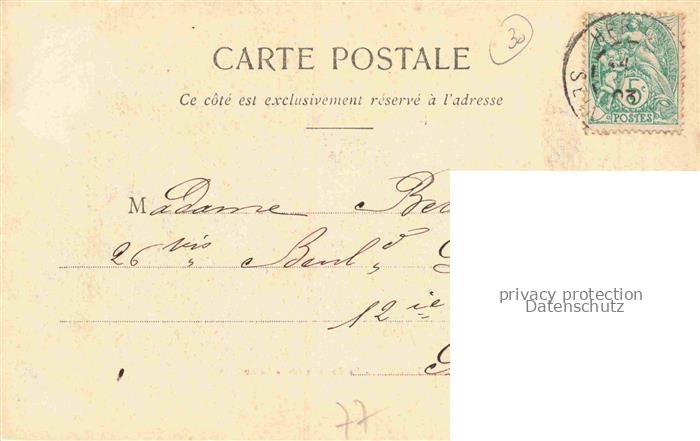 30
CARTE POSTALE
Ce côté est exclusivement réservé à l'adresse
5c
POSTES
03
Madame
26 bis Boul d
12ie
privacy protection
Datenschutz
77